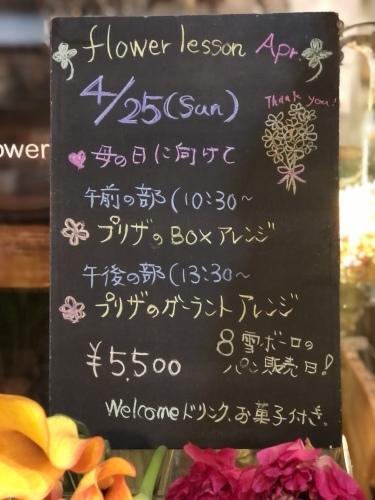 flower lesson Apr.
4/25(Sun)
Thank you!
母の日に向けて
ower
午前の部(10:30~
プリザのBOXアレンジ
午後の部(13:30~
プリザのガーラントアレンジ
¥5,500
&雪ボーロの
パン販売日!
Welcomeドリンク、お菓子付き。